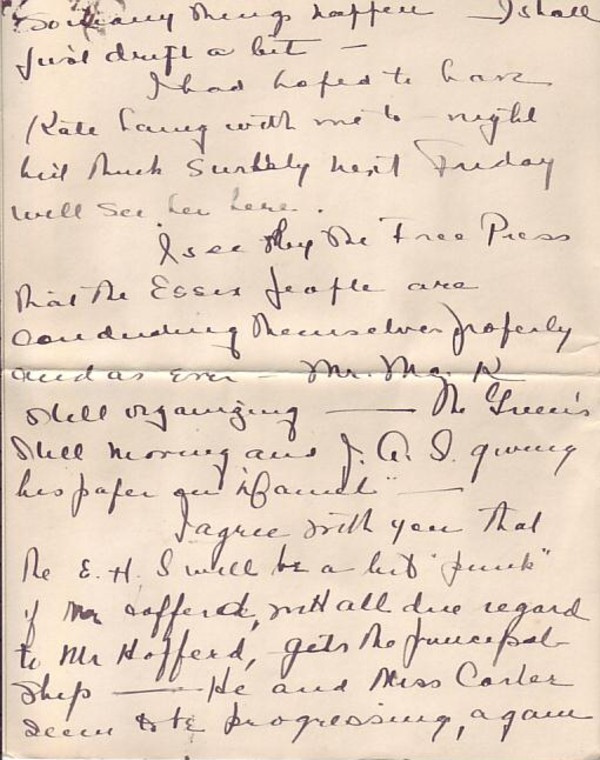 So many things happen — I shall
just drift a bit —
I had hoped to have
Kate Laing with me to-night
but think surely next Friday
will see her here.
I see by the Free Press
that the Essex people are
conducting themselves properly
and as ever — Mr. Mc. K
still organizing — The Green's
still moving and J. A. S. giving
his paper on "
I agree with you that
the E. H. S will be a bit "punk"
if Mr Hofferd, with all due regard
to Mr Hofferd, gets the principal-
ship — He and Miss Carter
seem to be progressing, again